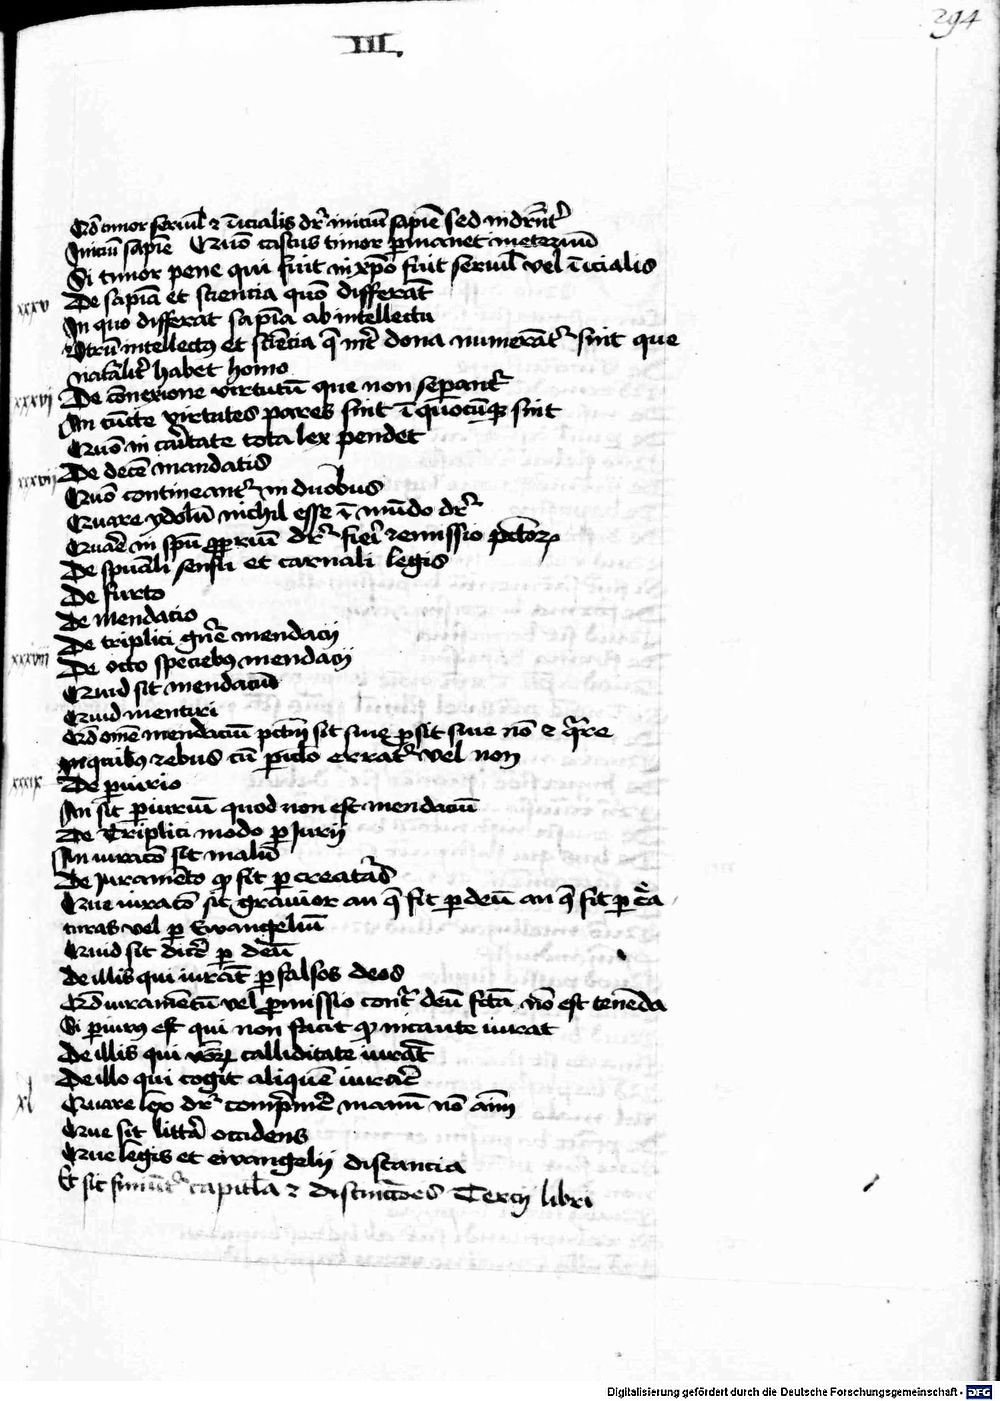 294
III.
Qd timor servil' et inicialis dr iniciu sapie sed indrnt'
Iniciu sapie Quo castus timor permanet in eternu
Si timor pene qui fuit in xpo fuit servil' vel inicialis
xxxv De sapia et sciencia quo differat
In quo differat sapia ab intellectu
Utru intellectus et sciencia q int' dona numerat' sint que
nat'alit' habet homo
xxxvi De conexione virtutu que non sepant'
An cuncte virtutes pares sint i quocuq sint
Quo in caritate tota lex pendet
xxxvii De dece mandatis
Quo contineant' in duobus
Quare ydolu nichil esse i mundo dr'
Quare in spu propriu dr' fieri remissio pctor
De spuali sensu et carnali legis
De furto
De mendatio
De triplici gne mendacij
xxxviii De octo speciebus mendacij
Quid sit mendaciu
Quid mentiri
Qd omne mendaciu pctm sit sive prosit sive no et quare
In quibus rebus cu periclo errat' vel non
xxxix De periurio
An sit periuriu quod non est mendaciu
De Triplici modo perJurij
An iuracio sit malu
De Juramento quod fit per creaturas
Que iuracio sit gravior an q fit per deu an q fit per crea
turas vel per Ewangeliu
Quid sit dice per deu
De illis qui iurat per falsos deos
Qd iuramentu vel promissio contra deu fcta no est tenenda
Si periurus est qui non facit quod incaute iurat
De illis qui verbor calliditate iurat
De illo qui cogit alique iurare
xl Quare lex dr' comprime manu no aim
Que sit littera occidens
Que legis et ewangelij distancia
Et sic finiut' capitula et distinctoes Tercij libri
Digitalisierung gefördert durch die Deutsche Forschungsgemeinschaft - DFG